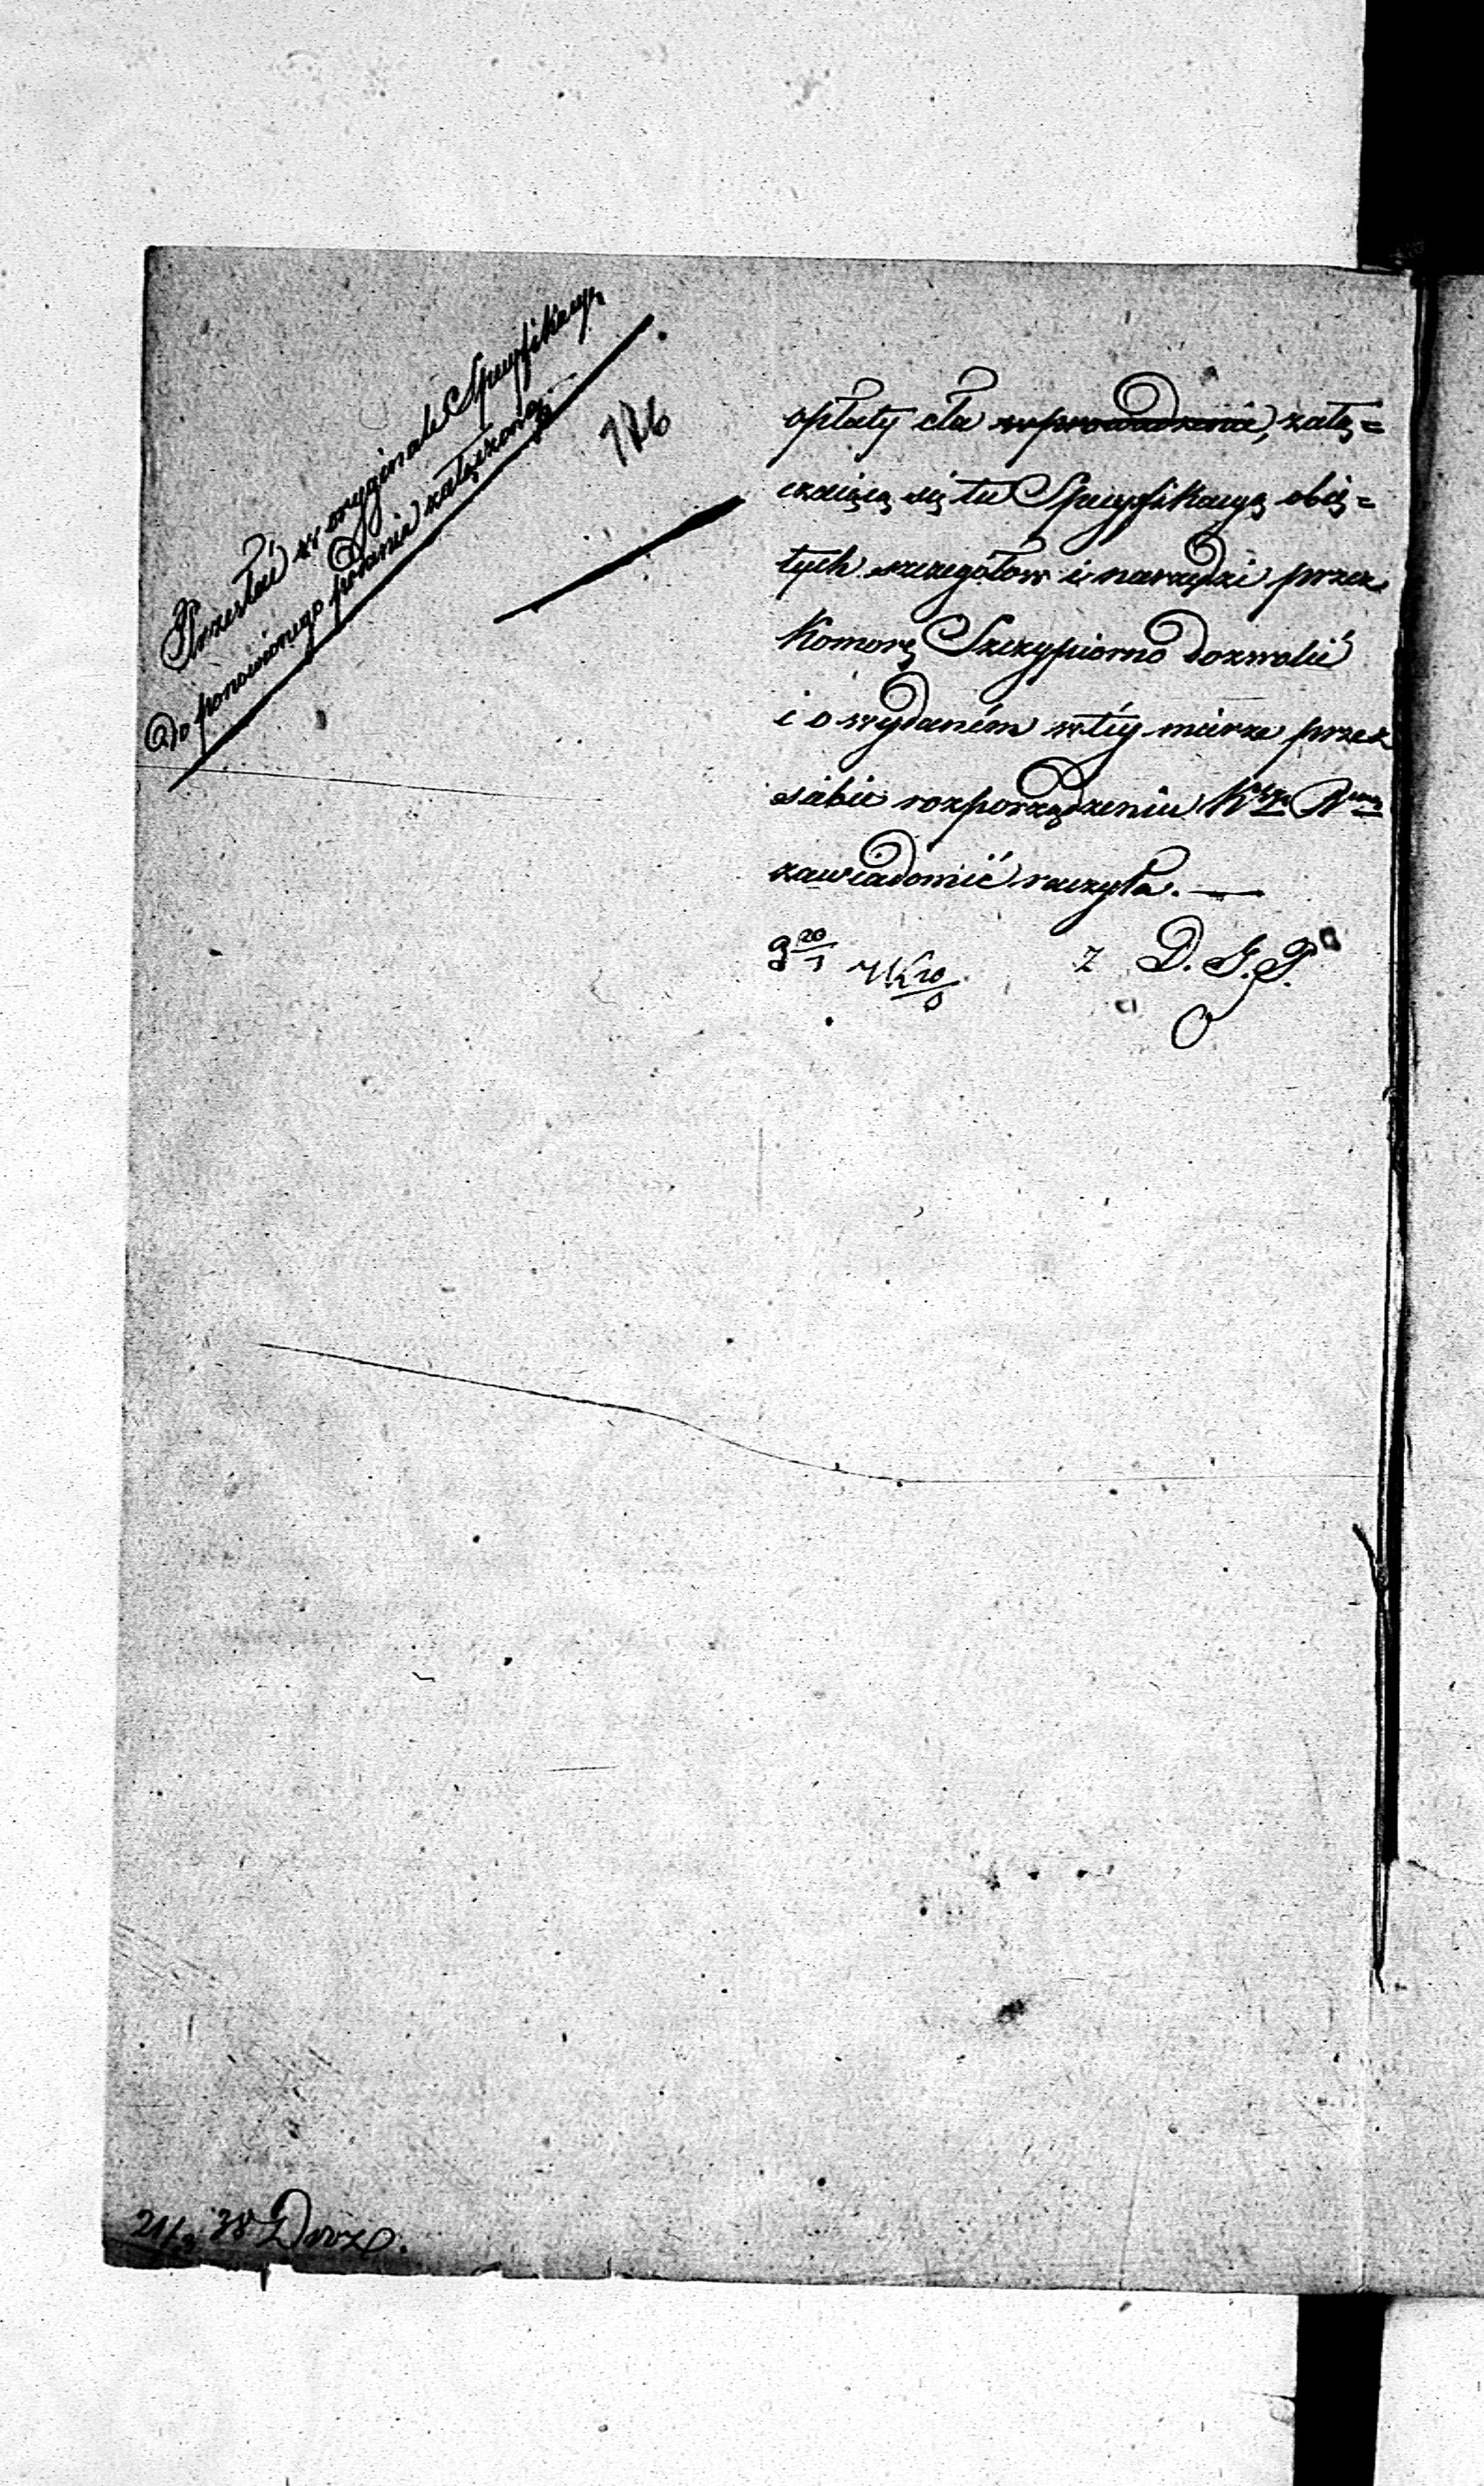 Przesłać w oryginale Specyfikacyą
do ponowionego podania załączoną.
176
opłaty cła ~~wprowadzenie~~, załą=
czaiącą się tu Specyfikacyą obię=
tych szczegółow i narzędzi przez
Komorę Szczypiorno dozwolić
i o wydaném w téy mierze przez
siebie rozporządzeniu
zawiadomić raczyła. —
z D. J. P.
21/3 38 Drzo.